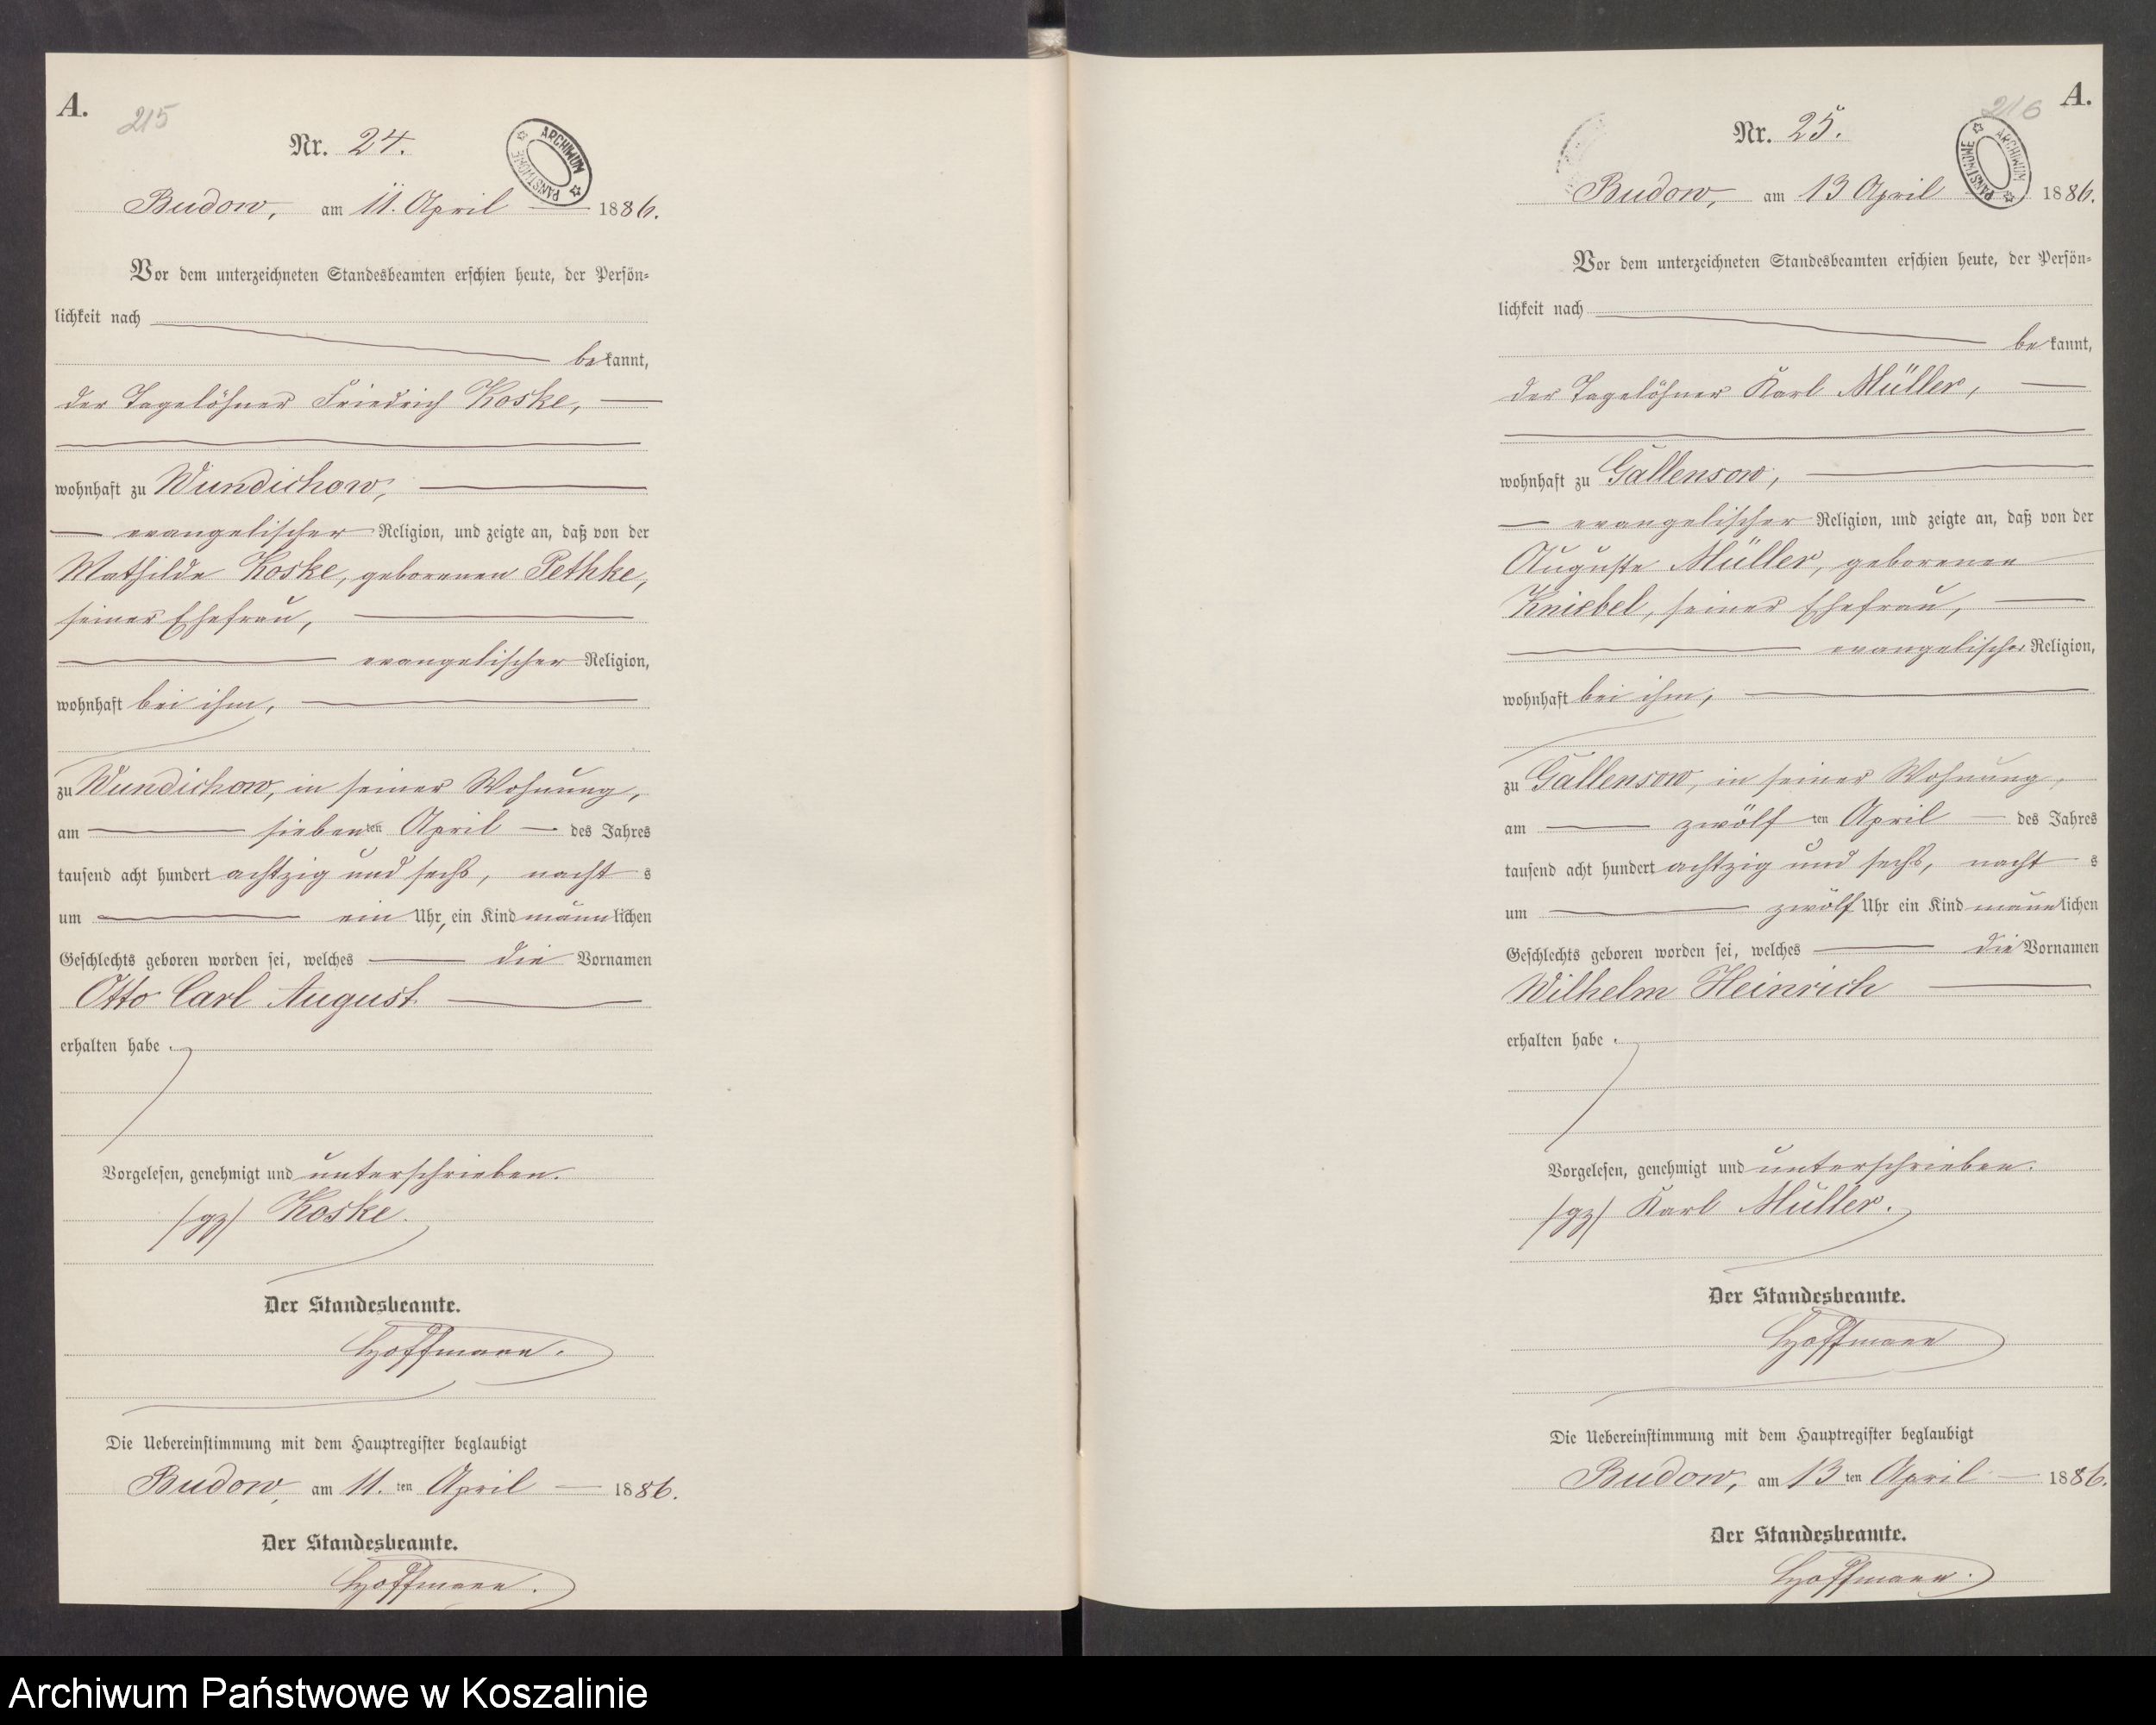 A.
215
Nr. 24.
ARCHIWUM PAŃSTWOWE
Budow, am 11. April 1886.
Vor dem unterzeichneten Standesbeamten erschien heute, der Persön-
lichkeit nach
bekannt,
der Tagelöhner Friedrich Koske,
wohnhaft zu Wundichow,
evangelischer Religion, und zeigte an, daß von der
Mathilde Koske, geborenen Pethke,
seiner Ehefrau,
evangelischer Religion,
wohnhaft bei ihm,
zu Wundichow, in seiner Wohnung,
am siebenten April des Jahres
tausend acht hundert achtzig und sechs, nachts
um ein Uhr, ein Kind männlichen
Geschlechts geboren worden sei, welches die Vornamen
Otto Carl August
erhalten habe.
Vorgelesen, genehmigt und unterschrieben.
/gz/ Koske.
Der Standesbeamte.
Hoffmann.
Die Uebereinstimmung mit dem Hauptregister beglaubigt
Budow, am 11. ten April 1886.
Der Standesbeamte.
Hoffmann.
A.
216
Nr. 25.
ARCHIWUM PAŃSTWOWE
Budow, am 13 April 1886.
Vor dem unterzeichneten Standesbeamten erschien heute, der Persön-
lichkeit nach
bekannt,
der Tagelöhner Karl Müller,
wohnhaft zu Gallensow,
evangelischer Religion, und zeigte an, daß von der
Auguste Müller, geborenen
Kniebel, seiner Ehefrau,
evangelischer Religion,
wohnhaft bei ihm,
zu Gallensow, in seiner Wohnung,
am zwölften April des Jahres
tausend acht hundert achtzig und sechs, nachts
um zwölf Uhr ein Kind männlichen
Geschlechts geboren worden sei, welches die Vornamen
Wilhelm Heinrich
erhalten habe.
Vorgelesen, genehmigt und unterschrieben.
/gz/ Karl Müller.
Der Standesbeamte.
Hoffmann
Die Uebereinstimmung mit dem Hauptregister beglaubigt
Budow, am 13 ten April 1886.
Der Standesbeamte.
Hoffmann.
Archiwum Państwowe w Koszalinie